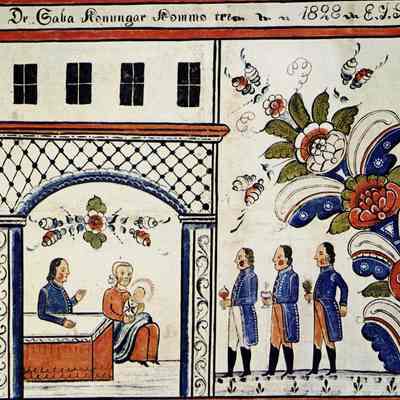 De Saba Konungar Kommo 1828 E.I.S